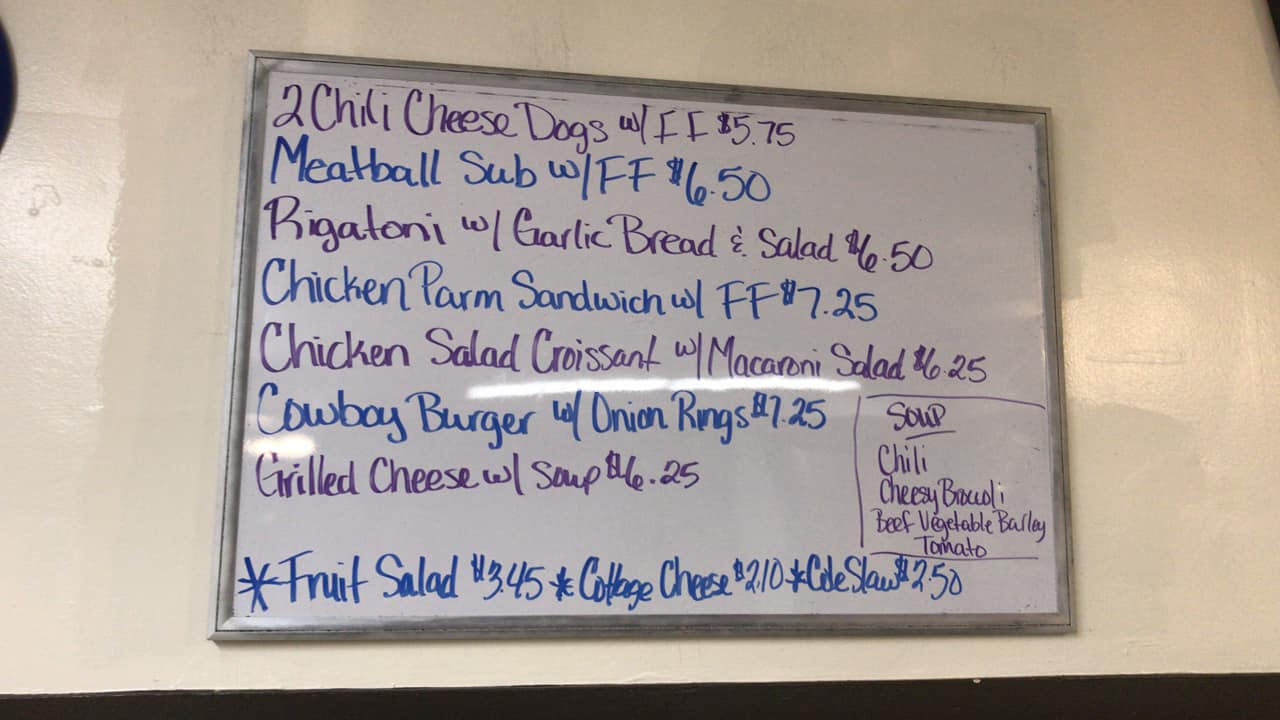 2 Chili Cheese Dogs w/ FF $5.75
Meatball Sub w/ FF $6.50
Rigatoni w/ Garlic Bread & Salad $6.50
Chicken Parm Sandwich w/ FF $7.25
Chicken Salad Croissant w/ Macaroni Salad $6.25
Cowboy Burger w/ Onion Rings $7.25
Grilled Cheese w/ Soup $6.25
Soup
Chili
Cheesy Broccoli
Beef Vegetable Barley
Tomato
*Fruit Salad $3.45 * Cottage Cheese $2.10 * Cole Slaw $2.50